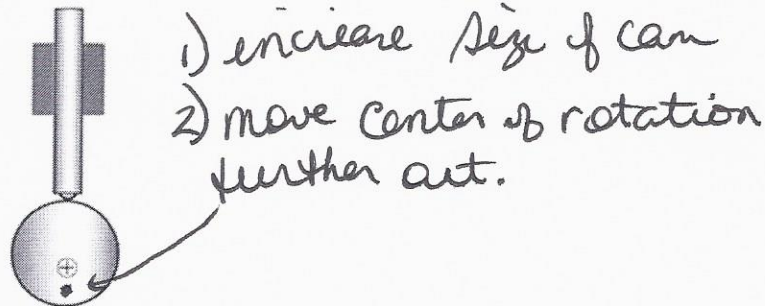 1) increase size of cam
2) move center of rotation
further out.